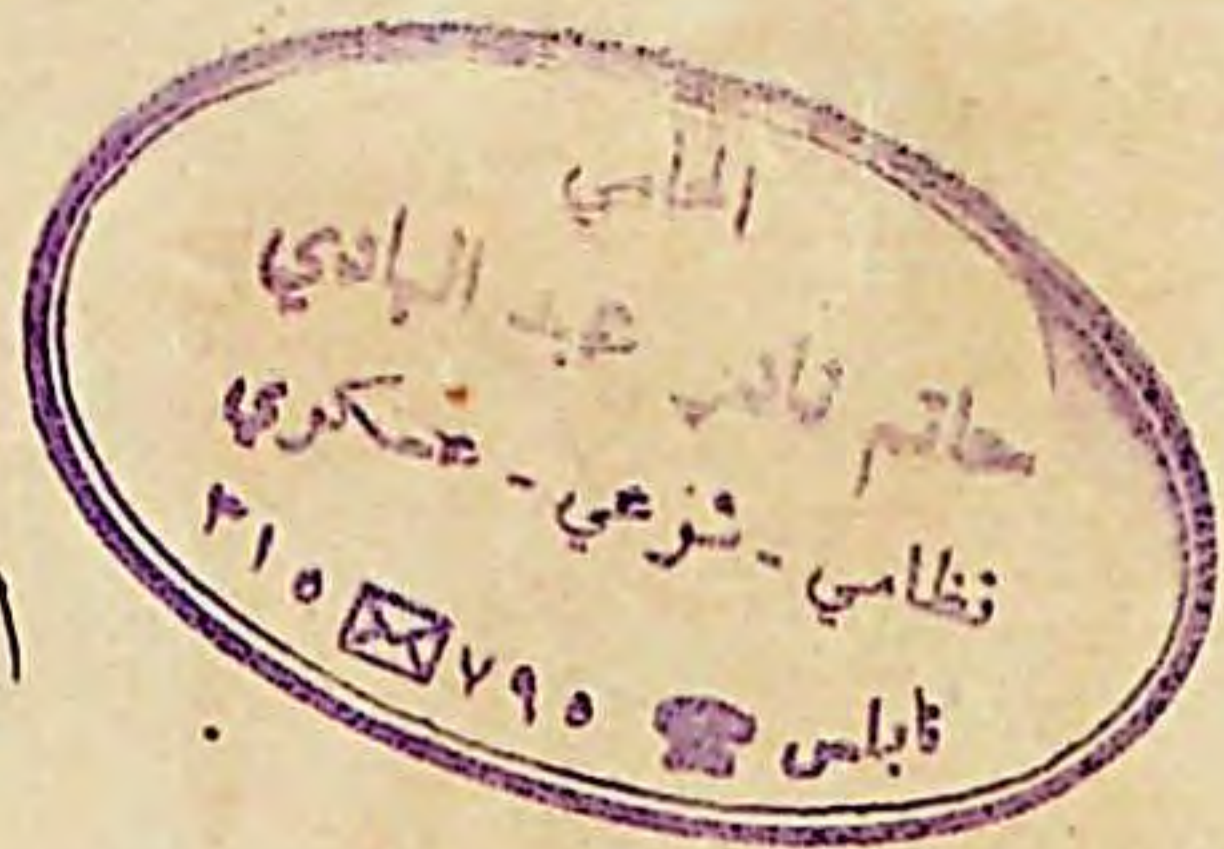 المحامي
حاتم عبد الهادي
نظامي - شرعي - عسكري
نابلس ☎ ٧٩٥ ✉ ٣١٥